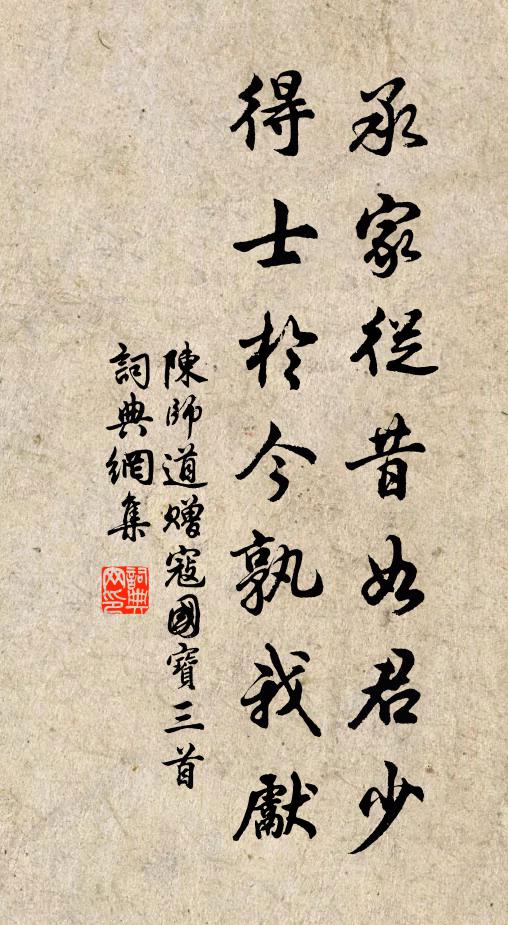 承家從昔如君少
得士於今孰我獻
陳師道贈寇國寶三首
詞典網集
詞典
网印